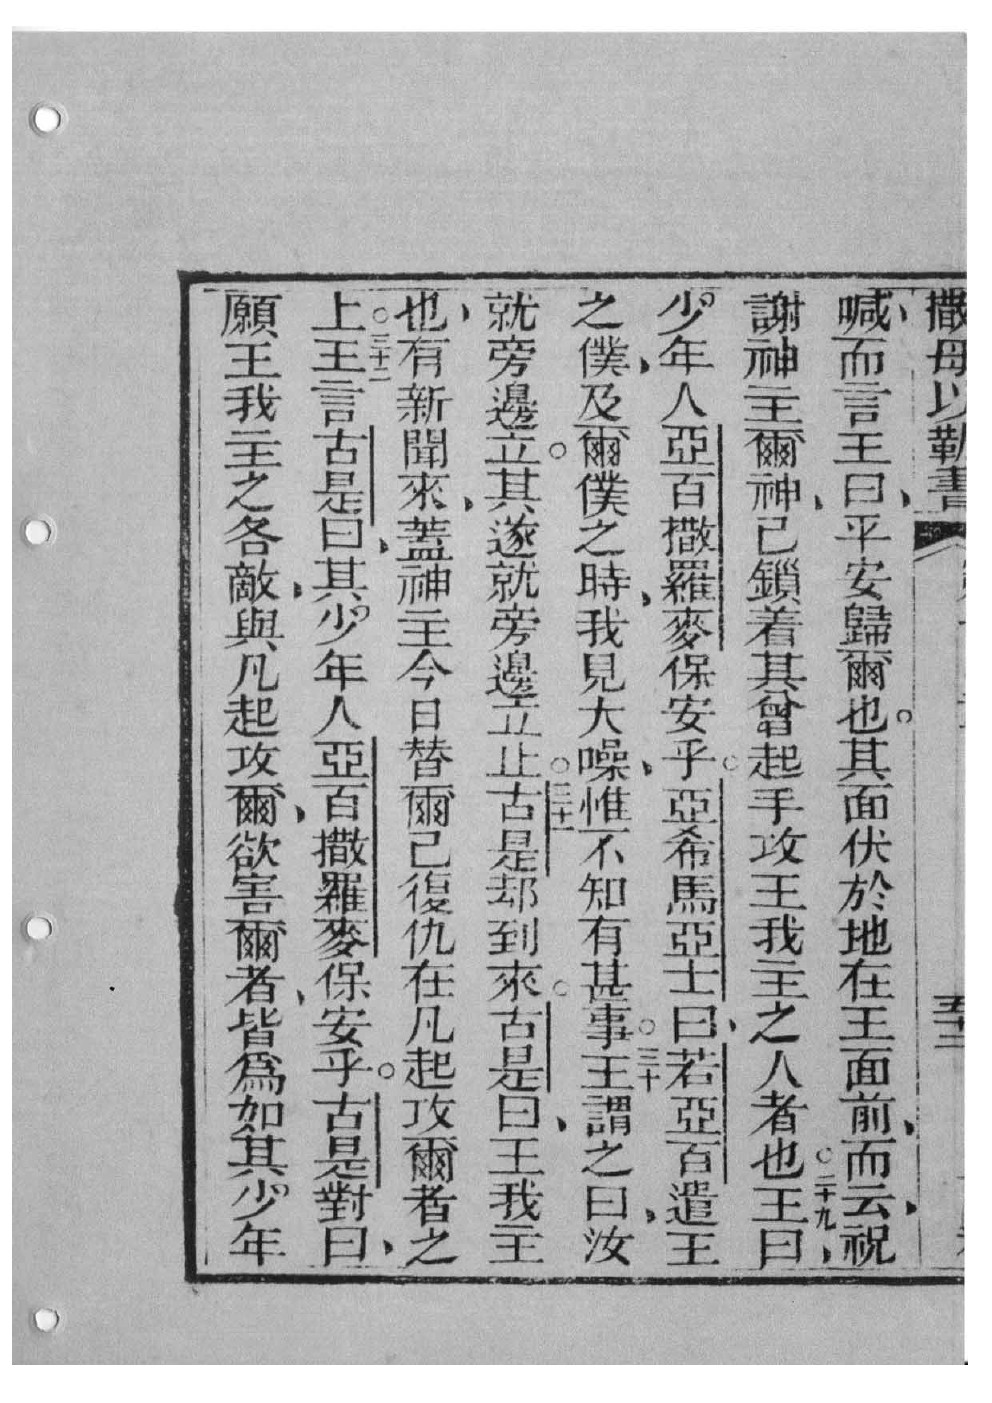 撒母以勒書
五十三
喊、而言王曰、平安歸爾也。其面伏於地在王面前、而云、祝
謝神主爾神、已鎖着其曾起手攻王我主之人者也○二十九王曰、
少年人亞百撒羅麥保安乎○亞希馬亞士曰、若亞百遣王
之僕、及爾僕之時、我見大噪、惟不知有甚事○三十王謂之曰、汝
就旁邊立○其遂就旁邊立止○三十一古是却到來○古是曰、王我主
也、有新聞來、蓋神主今日替爾已復仇在凡起攻爾者之
上○三十二王言古是曰、其少年人亞百撒羅麥保安乎○古是對曰、
願王我主之各敵、與凡起攻爾、欲害爾者、皆為如其少年